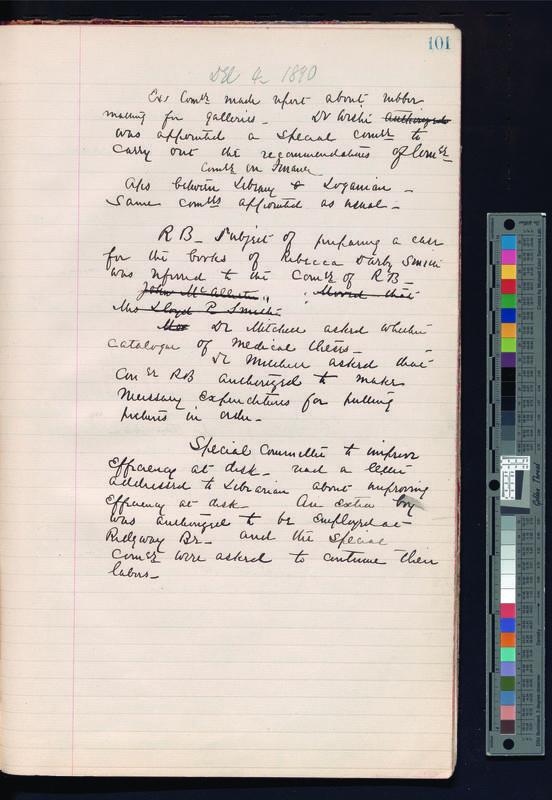 101
Dec 4 1890
Exr Comtee made report about rubber
matting for galleries - Dr Wistar authorized
was appointed a special comtee to
carry out the recommendations of Comtee
Comtee on Finance
Aps between Library & Loganian -
Same comtees appointed as usual -
R B - Subject of preparing a case
for the books of Rebecca Darby Smith
was referred to the Comtee of R B -
John McAllister Moved that
Mrs Lloyd P. Smith
Mov Dr Mitchell asked whether
Catalogue of Medical thesis -
Dr Mitchell asked that
Comtee RB authorized to make
Necessary Expenditures for putting
pictures in order -
Special Committee to improve
Efficiency at disk - read a letter
addressed to Librarian about improving
Efficiency at disk - An Extra boy
was authorized to be Employed at
Ridgway Br - and the special
Comtee were asked to continue their
labors -